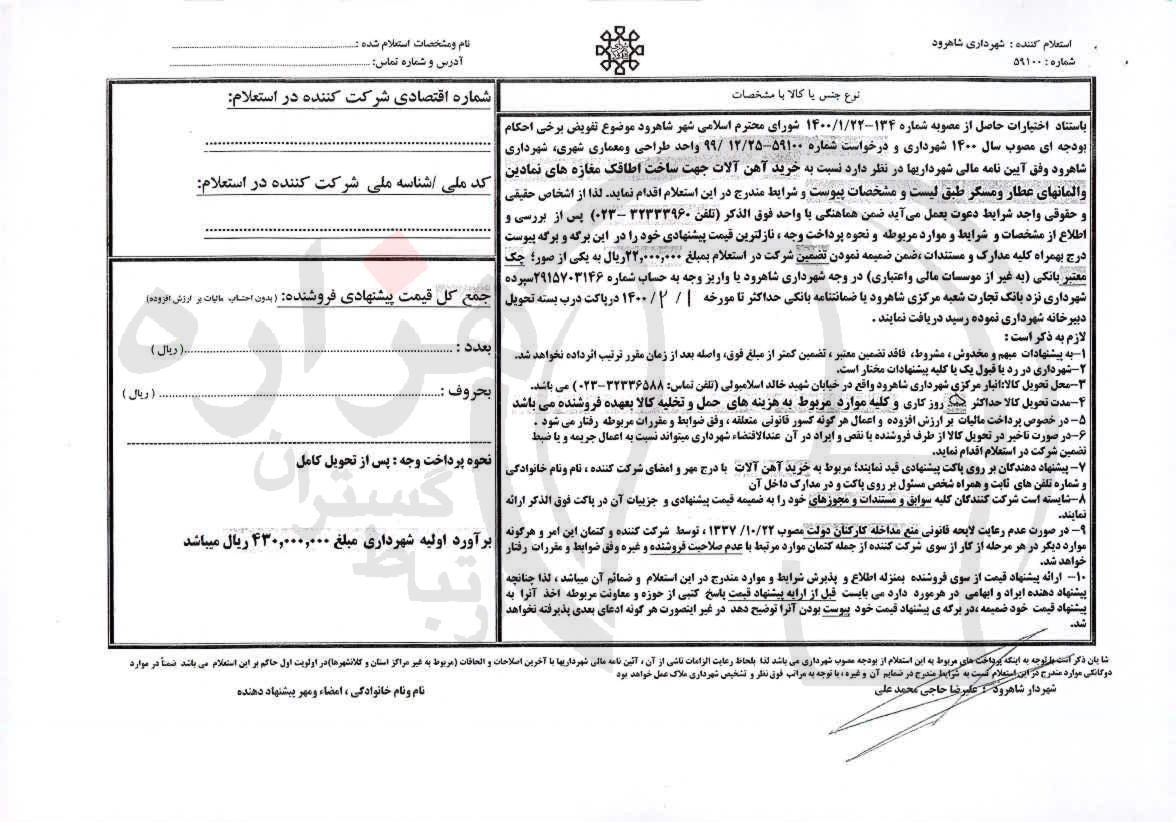 استعلام کننده : شهرداری شاهرود
شماره : ۵۹۱۰۰
نام ومشخصات استعلام شده :
آدرس و شماره تماس:
نوع جنس یا کالا با مشخصات
باستناد اختیارات حاصل از مصوبه شماره ۱۳۴-۱۴۰۰/۱/۲۲ شورای محترم اسلامی شهر شاهرود موضوع تفویض برخی احکام
بودجه ای مصوب سال ۱۴۰۰ شهرداری و درخواست شماره ۵۹۱۰۰-۹۹/ ۱۲/۲۵ واحد طراحی ومعماری شهری، شهرداری
شاهرود وفق آیین نامه مالی شهرداریها در نظر دارد نسبت به خرید آهن آلات جهت ساخت اطاقک مغازه های نمادین
والمانهای عطار ومسگر طبق لیست و مشخصات پیوست و شرایط مندرج در این استعلام اقدام نماید. لذا از اشخاص حقیقی
و حقوقی واجد شرایط دعوت بعمل می‌آید ضمن هماهنگی با واحد فوق الذکر (تلفن ۳۲۳۳۳۹۶۰ -۰۲۳) پس از بررسی و
اطلاع از مشخصات و شرایط و موارد مربوطه و نحوه پرداخت وجه ، نازلترین قیمت پیشنهادی خود را در این برگه و برگه پیوست
درج بهمراه کلیه مدارک و مستندات ،ضمن ضمیمه نمودن تضمین شرکت در استعلام بمبلغ ۲۲,۰۰۰,۰۰۰ریال به یکی از صور؛ چک
معتبر بانکی (به غیر از موسسات مالی واعتباری) در وجه شهرداری شاهرود یا واریز وجه به حساب شماره ۲۹۱۵۷۰۳۱۴۶سپرده
شهرداری نزد بانک تجارت شعبه مرکزی شاهرود یا ضمانتنامه بانکی حداکثر تا مورخه ۱ /۲ /۱۴۰۰ درپاکت درب بسته تحویل
دبیرخانه شهرداری نموده رسید دریافت نمایند .
لازم به ذکر است :
۱-به پیشنهادات مبهم و مخدوش ، مشروط، فاقد تضمین معتبر ، تضمین کمتر از مبلغ فوق، واصله بعد از زمان مقرر ترتیب اثرداده نخواهد شد.
۲-شهرداری در رد یا قبول یک یا کلیه پیشنهادات مختار است.
۳-محل تحویل کالا:انبار مرکزی شهرداری شاهرود واقع در خیابان شهید خالد اسلامبولی (تلفن تماس: ۳۲۳۳۶۵۸۸-۰۲۳) می باشد.
۴-مدت تحویل کالا حداکثر روز کاری و کلیه موارد مربوط به هزینه های حمل و تخلیه کالا بعهده فروشنده می باشد
۵- در خصوص پرداخت مالیات بر ارزش افزوده و اعمال هر گونه کسور قانونی متعلقه ، وفق ضوابط و مقررات مربوطه رفتار می شود .
۶-در صورت تاخیر در تحویل کالا از طرف فروشنده یا نقص و ایراد در آن عندالاقتضاء شهرداری میتواند نسبت به اعمال جریمه و یا ضبط
تضمین شرکت در استعلام اقدام نماید.
۷- پیشنهاد دهندگان بر روی پاکت پیشنهادی قید نمایند؛ مربوط به خرید آهن آلات با درج مهر و امضای شرکت کننده ، نام ونام خانوادگی
و شماره تلفن های ثابت و همراه شخص مسئول بر روی پاکت و در مدارک داخل آن
۸-شایسته است شرکت کنندگان کلیه سوابق و مستندات و مجوزهای خود را به ضمیمه قیمت پیشنهادی و جزییات آن در پاکت فوق الذکر ارائه
نمایند.
۹- در صورت عدم رعایت لایحه قانونی منع مداخله کارکنان دولت مصوب ۱۰/۲۲/ ۱۳۳۷ ، توسط شرکت کننده و کتمان این امر و هرگونه
موارد دیگر در هر مرحله از کار از سوی شرکت کننده از جمله کتمان موارد مرتبط با عدم صلاحیت فروشنده و غیره وفق ضوابط و مقررات رفتار
خواهد شد.
۱۰- ارائه پیشنهاد قیمت از سوی فروشنده بمنزله اطلاع و پذیرش شرایط و موارد مندرج در این استعلام و ضمائم آن میباشد ، لذا چنانچه
پیشنهاد دهنده ایراد و ابهامی در هرمورد دارد می بایست قبل از ارایه پیشنهاد قیمت پاسخ کتبی از حوزه و معاونت مربوطه اخذ آنرا به
پیشنهاد قیمت خود ضمیمه ،در برگه ی پیشنهاد قیمت خود پیوست بودن آنرا توضیح دهد در غیر اینصورت هر گونه ادعای بعدی پذیرفته نخواهد
شد.
شماره اقتصادی شرکت کننده در استعلام:
کد ملی /شناسه ملی شرکت کننده در استعلام:
جمع کل قیمت پیشنهادی فروشنده: (بدون احتساب مالیات بر ارزش افزوده)
بعدد : ( ریال )
بحروف : ( ریال )
نحوه پرداخت وجه : پس از تحویل کامل
برآورد اولیه شهرداری مبلغ ۴۳۰,۰۰۰,۰۰۰ ریال میباشد
شا یان ذکر است با توجه به اینکه پرداخت های مربوط به این استعلام از بودجه مصوب شهرداری می باشد لذا بلحاظ رعایت الزامات ناشی از آن ، آئین نامه مالی شهرداریها با آخرین اصلاحات و الحاقات (مربوط به غیر مراکز استان و کلانشهرها)در اولویت اول حاکم بر این استعلام می باشد ضمناً در موارد
دوگانگی موارد مندرج در این استعلام نسبت به شرایط مندرج در ضمایم آن و غیره ، با توجه به مراتب فوق نظر و تشخیص شهرداری ملاک عمل خواهد بود
شهردار شاهرود : علیرضا حاجی محمد علی
نام ونام خانوادگی ، امضاء ومهر پیشنهاد دهنده
هزاره
گستران